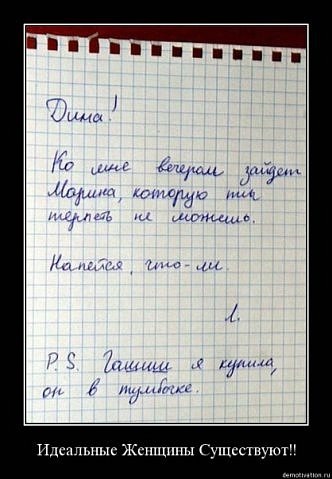 Дима!
Ко мне вечером зайдет
Марина, которую ты
терпеть не можешь.
Напейся, что-ли.
Л.
P.S. Гашиш я купила,
он в тумбочке.
Идеальные Женщины Существуют!!
demotivation.ru